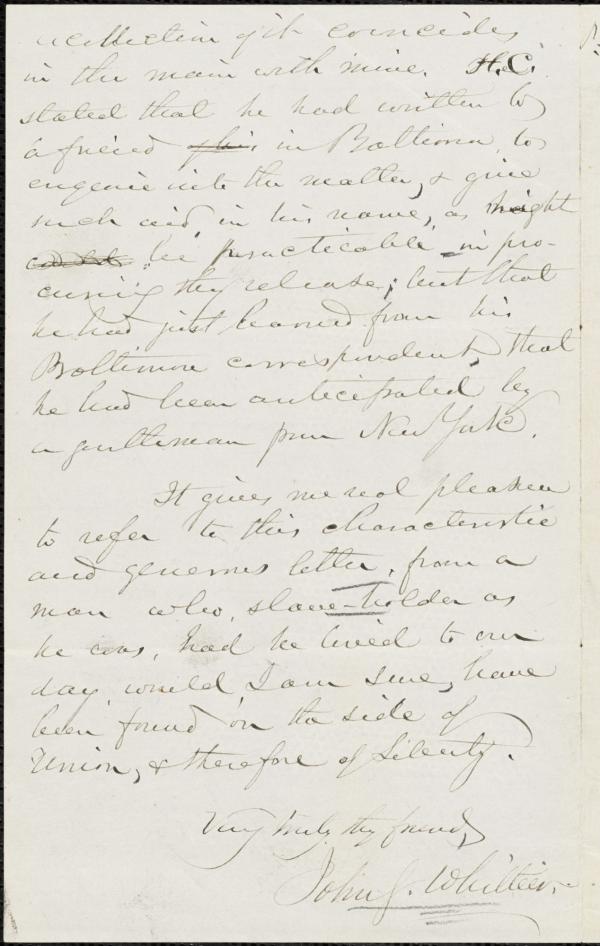 recollection of it coincides
in the main with mine. H.C.
stated that he had written to
a friend in Baltimore, to
enquire into the matter, & give
such aid, in his name, as might
be practicable in pro-
curing thy release; but that
he had just learned from his
Baltimore correspondent, that
he had been anticipated by
a gentleman from New York.
It gives me real pleasure
to refer to this characteristic
and generous letter, from a
man who, slave-holder as
he was, had he lived to our
day, would I am sure, have
been found on the side of
Union, & therefore of Liberty.
Very truly thy friend,
John G. Whittier.